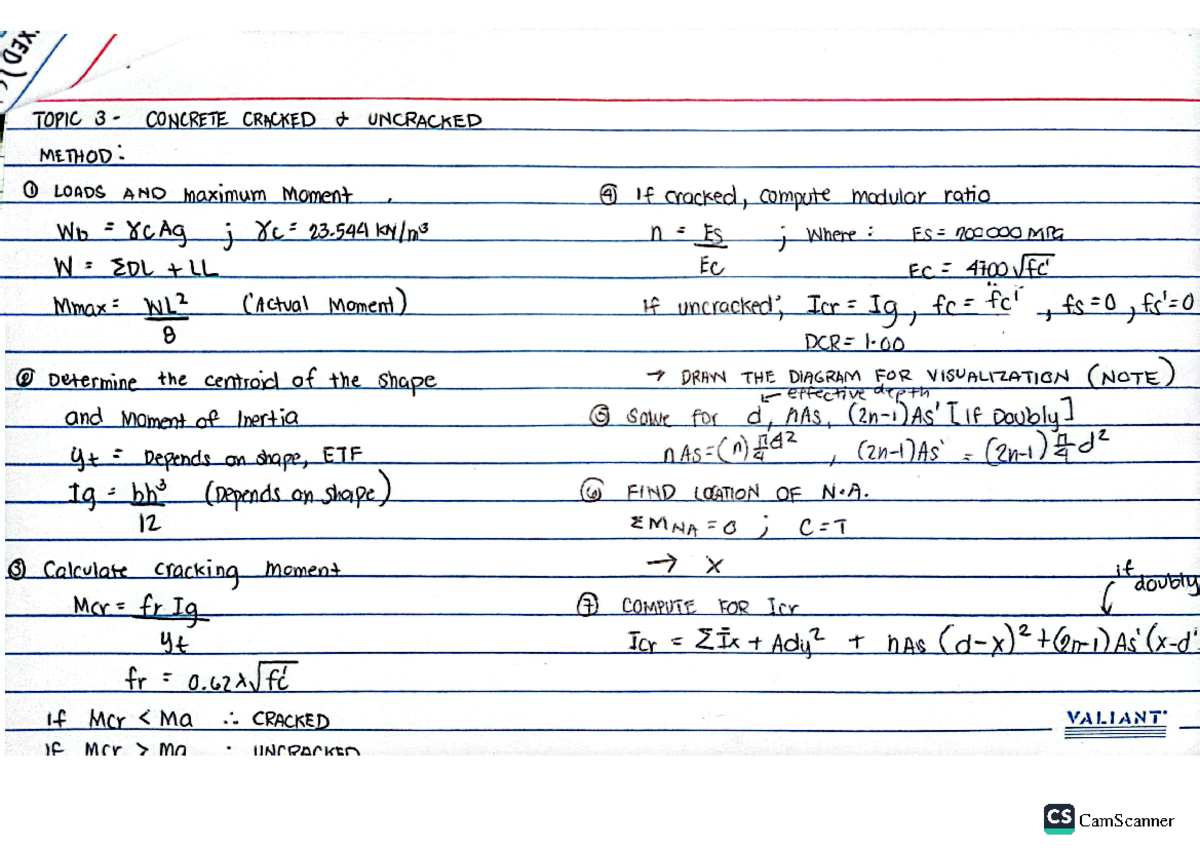 XED)
TOPIC 3 - CONCRETE CRACKED & UNCRACKED
METHOD:
① LOADS AND maximum Moment
Wb = γcAg ; γc = 23.544 kN/m³
W = ΣDL + LL
Mmax = WL²/8 (Actual Moment)
② Determine the centroid of the shape
and Moment of Inertia
yt = Depends on shape, ETF
Ig = bh³/12 (Depends on shape)
③ Calculate cracking moment
Mcr = fr Ig/yt
fr = 0.62λ√fc'
If Mcr < Ma ∴ CRACKED
If Mcr > Ma : UNCRACKED
④ If cracked, compute modular ratio
n = Es/Ec ; Where : ES = 200000 MPa
EC = 4700√fc'
If uncracked; Icr = Ig, fc = fc', fs = 0, fs' = 0
DCR = 1.00
→ DRAW THE DIAGRAM FOR VISUALIZATION (NOTE)
← effective depth
⑤ Solve for d, nAs, (2n-1)As' [If Doubly]
nAs = (n) π/4 d², (2n-1)As' = (2n-1) π/4 d²
⑥ FIND LOCATION OF N.A.
ΣM NA = 0 ; C = T
→ X
if doubly
⑦ COMPUTE FOR Icr
Icr = ΣĪx + Ady² + nAs (d-x)² + (2n-1) As' (x-d'
VALIANT
CS CamScanner